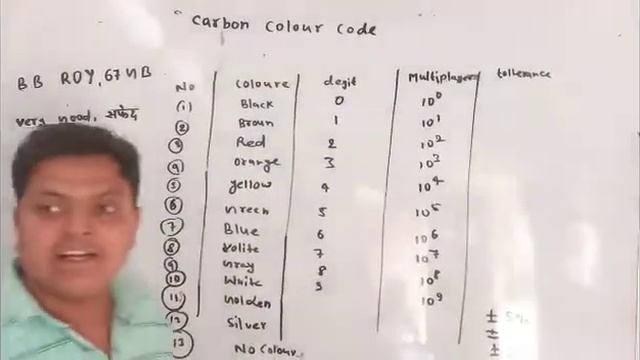 carbon colour code
BB ROY, 67 UB
very nood, सफेद
No coloure degit Multiplayers tollerance
(1) Black 0 10⁰
2 Broun 1 10¹
3 Red 2 10²
4 orange 3 10³
5 yellow 4 10⁴
6 nreen 5 10⁵
7 Blue 6 10⁶
8 volite 7 10⁷
9 nray 8 10⁸
10 White 9 10⁹
11 nolden ± 5%
12 Silver ±
13 No Colour ±